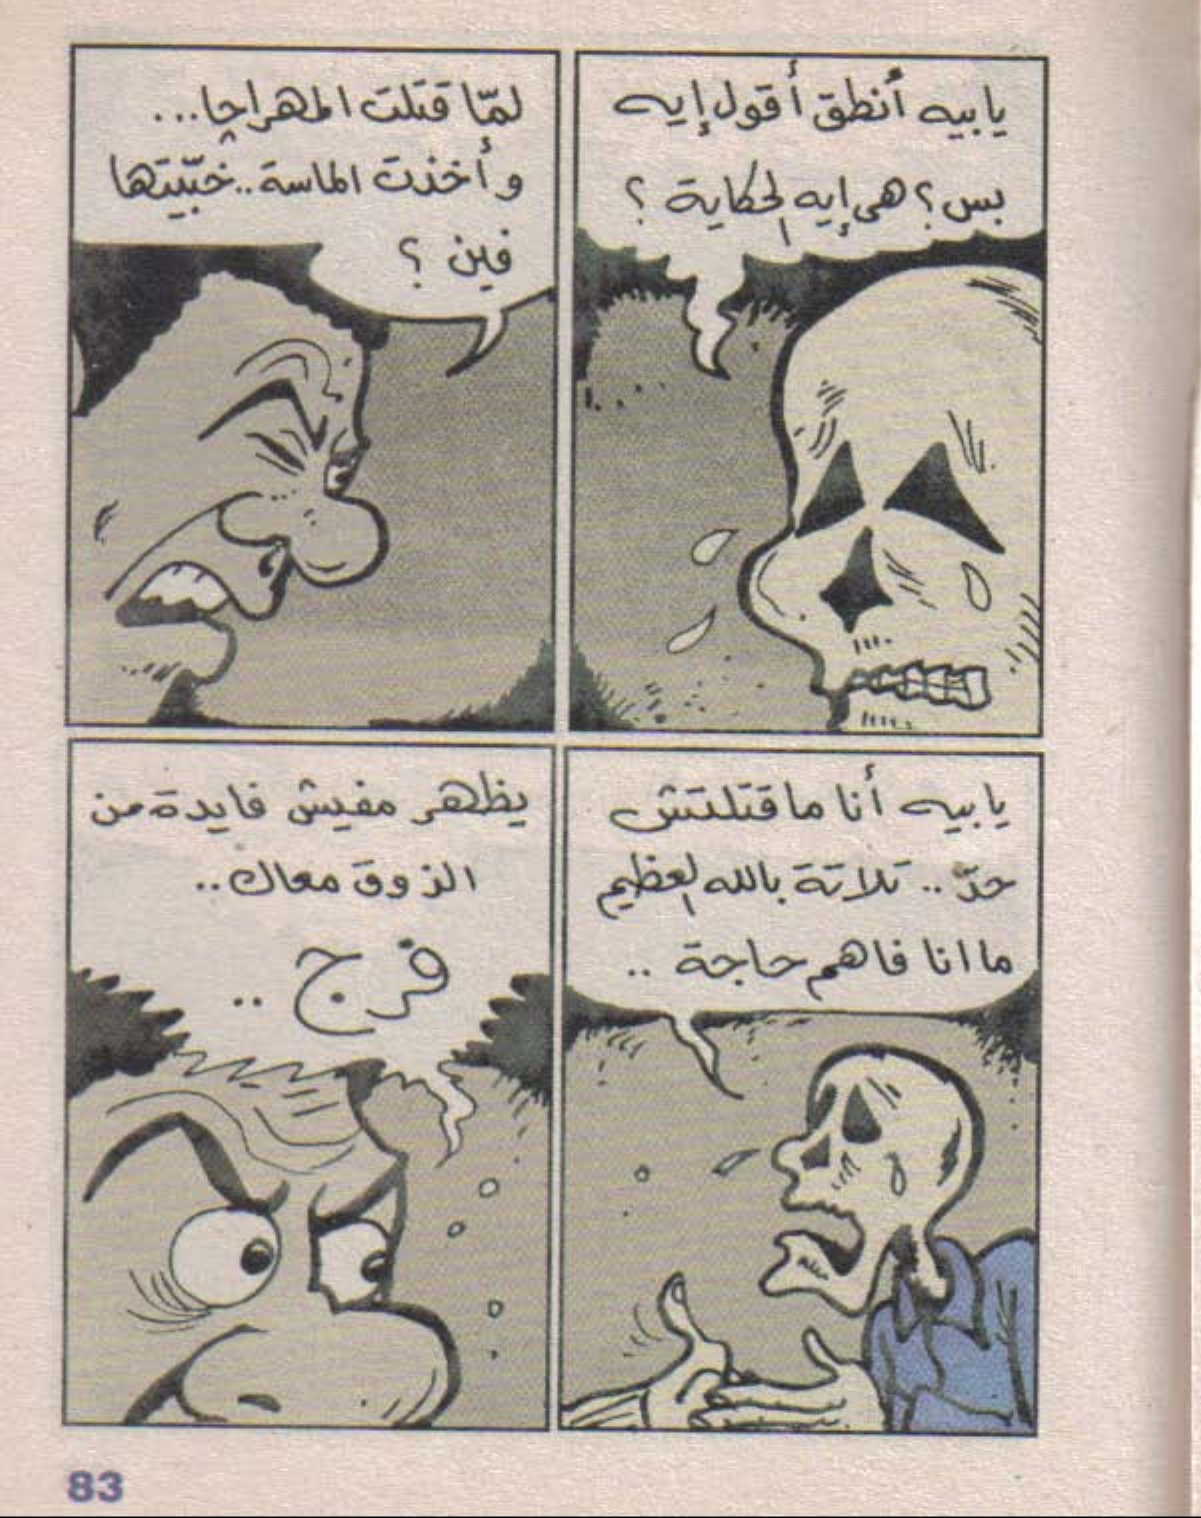 يابيه أنطق أقول إيه
بس؟ هى إيه الحكاية؟
لمّا قتلت المهراجا...
وأخذت الماسة.. خبّيتها
فين؟
يابيه أنا ماقتلتش
حدّ.. تلاتة بالله العظيم
ماانا فاهم حاجة..
يظهر مفيش فايدة من
الذوق معاك..
فرج..
83